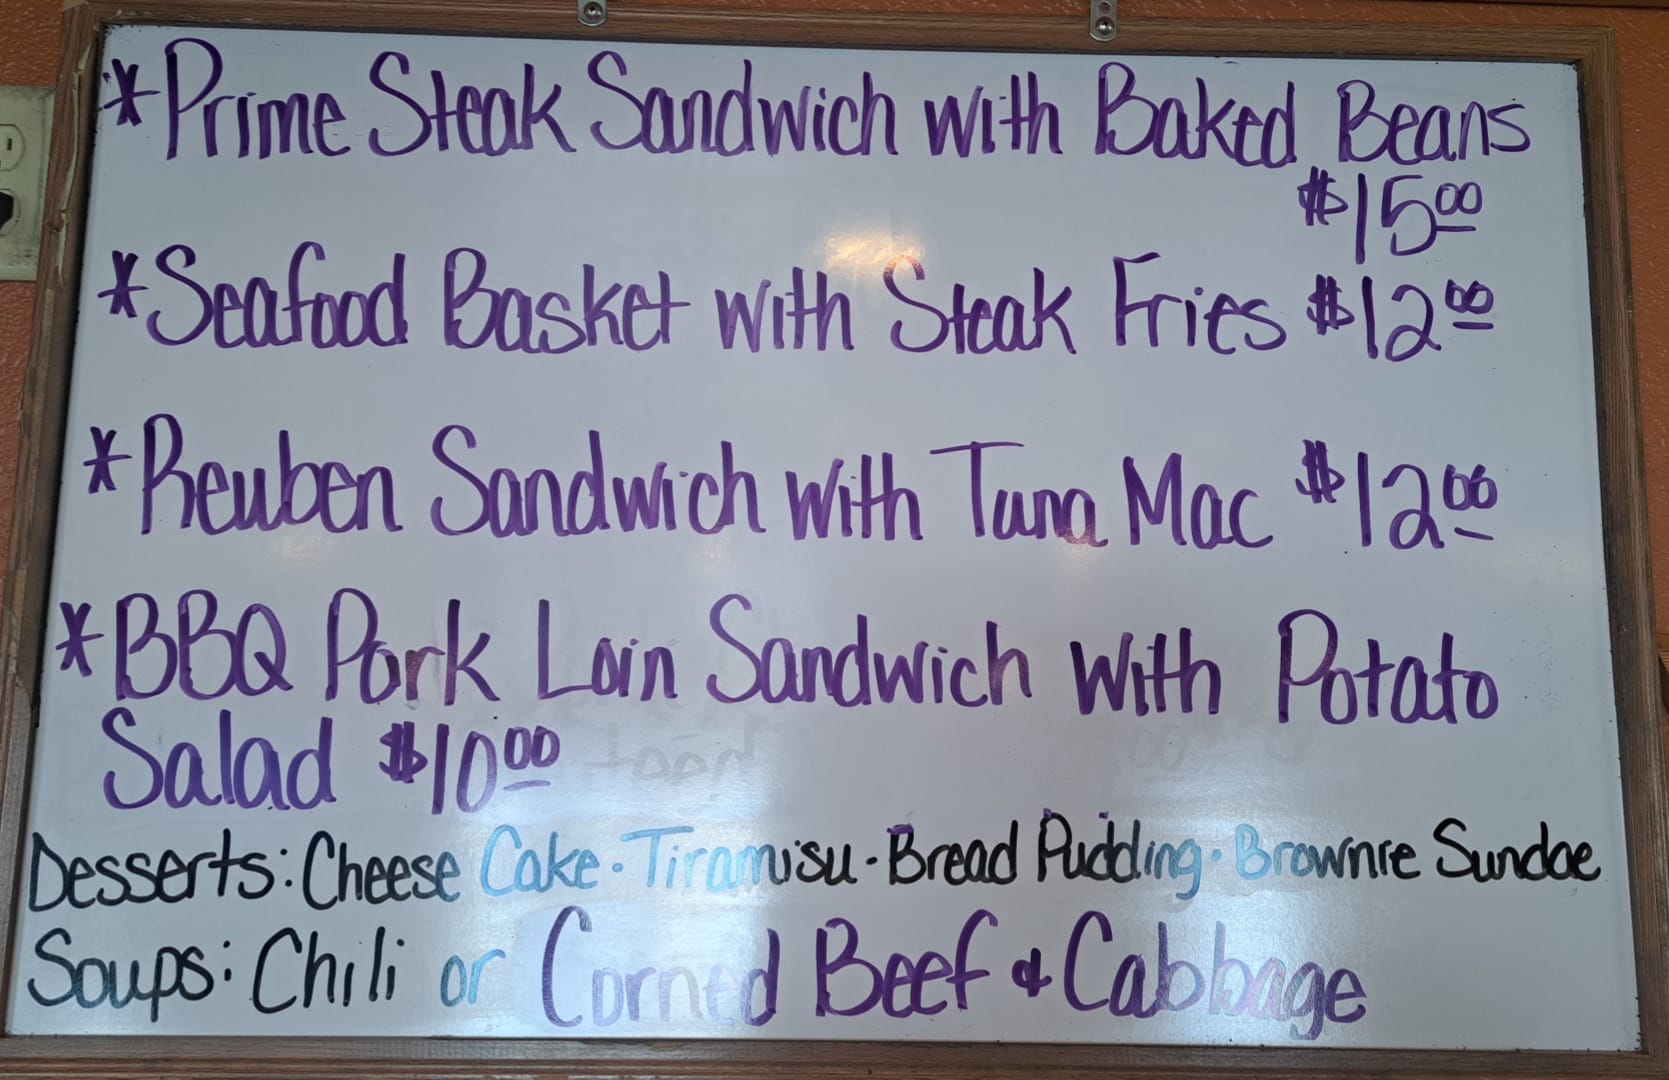 *Prime Steak Sandwich with Baked Beans
$15.00
*Seafood Basket with Steak Fries $12.00
*Reuben Sandwich with Tuna Mac $12.00
*BBQ Pork Loin Sandwich with Potato
Salad $10.00
Desserts: Cheese Cake · Tiramisu · Bread Pudding · Brownie Sundae
Soups: Chili or Corned Beef & Cabbage